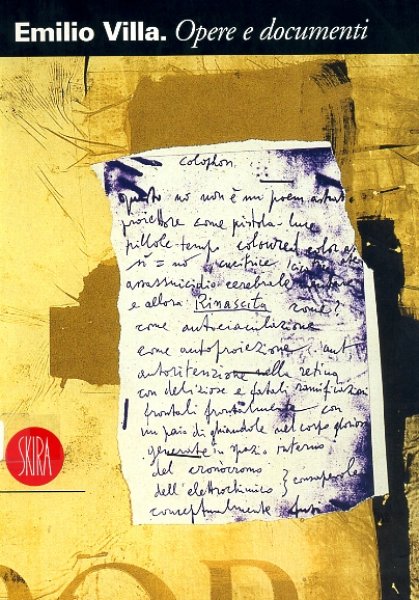 Emilio Villa. Opere e documenti
colophon.
questo no non è un poem
proiettore come pistola-luce
pillole-tempo coloured color
sì = no cucitrice
assassuicidio cerebrale
e allora: Rinascita come?
come autoeiaculazione
come autoproiezione, aut
autoritenzione nella retina
con deliziose e fatali ramificazioni
frontali frontalmente con
un paio di ghiandole nel corpo glorioso
generate in spazio interno
del cronocromo
dell'elettrochimico } consapevole
concettualmente
SKIRA